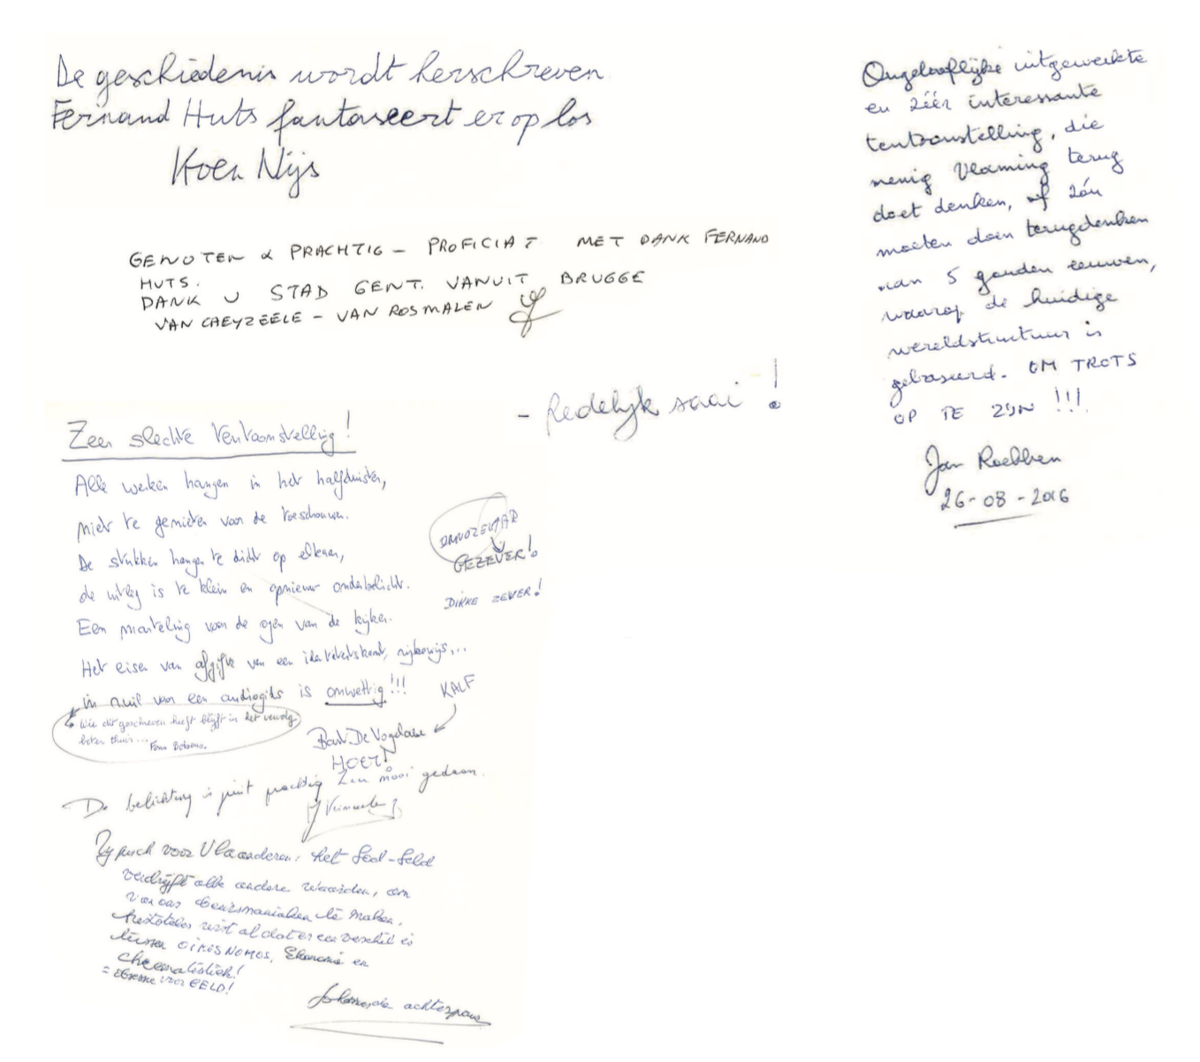 De geschiedenis wordt herschreven
Fernand Huts fantaseert er op los
Koen Nijs
GENOTEN & PRACHTIG - PROFICIAT MET DANK FERNAND
HUTS.
DANK U STAD GENT. VANUIT BRUGGE
VAN CAEYZEELE - VAN ROSMALEN
Ongelooflijke uitgewerkte
en zéér interessante
tentoonstelling, die
menig Vlaming terug
doet denken, of zóu
moeten doen terugdenken
aan 5 gouden eeuwen,
waarop de huidige
wereldstructuur is
gebaseerd. OM TROTS
OP TE ZIJN !!!
Jan Roebben
26-08-2016
- Redelijk saai !
Zeer slechte tentoonstelling!
Alle werken hangen in het halfduister,
niet te genieten van de toeschouwer.
De stukken hangen te dicht op elkaar,
de uitleg is te klein en opnieuw onderbelicht.
Een marteling voor de ogen van de kijker.
Het eisen van afgifte van een identiteitskaart, rijbewijs,...
in ruil van een audiogids is onwettig!!!
GEZEVER!
DIKKE ZEVER!
KALF
Wie dit geschreven heeft blijft in het vervolg
beter thuis...
Bart De Vogelaere
HOER!
De belichting is juist prachtig Zeer mooi gedaan.
Typisch voor Vlaanderen: het God-Geld
verdrijft alle andere waarden, om
van ons te maken.
Aristoteles wist al dat er een verschil is
tussen OIKOS NOMOS, Ekonomie en
= voor GELD!